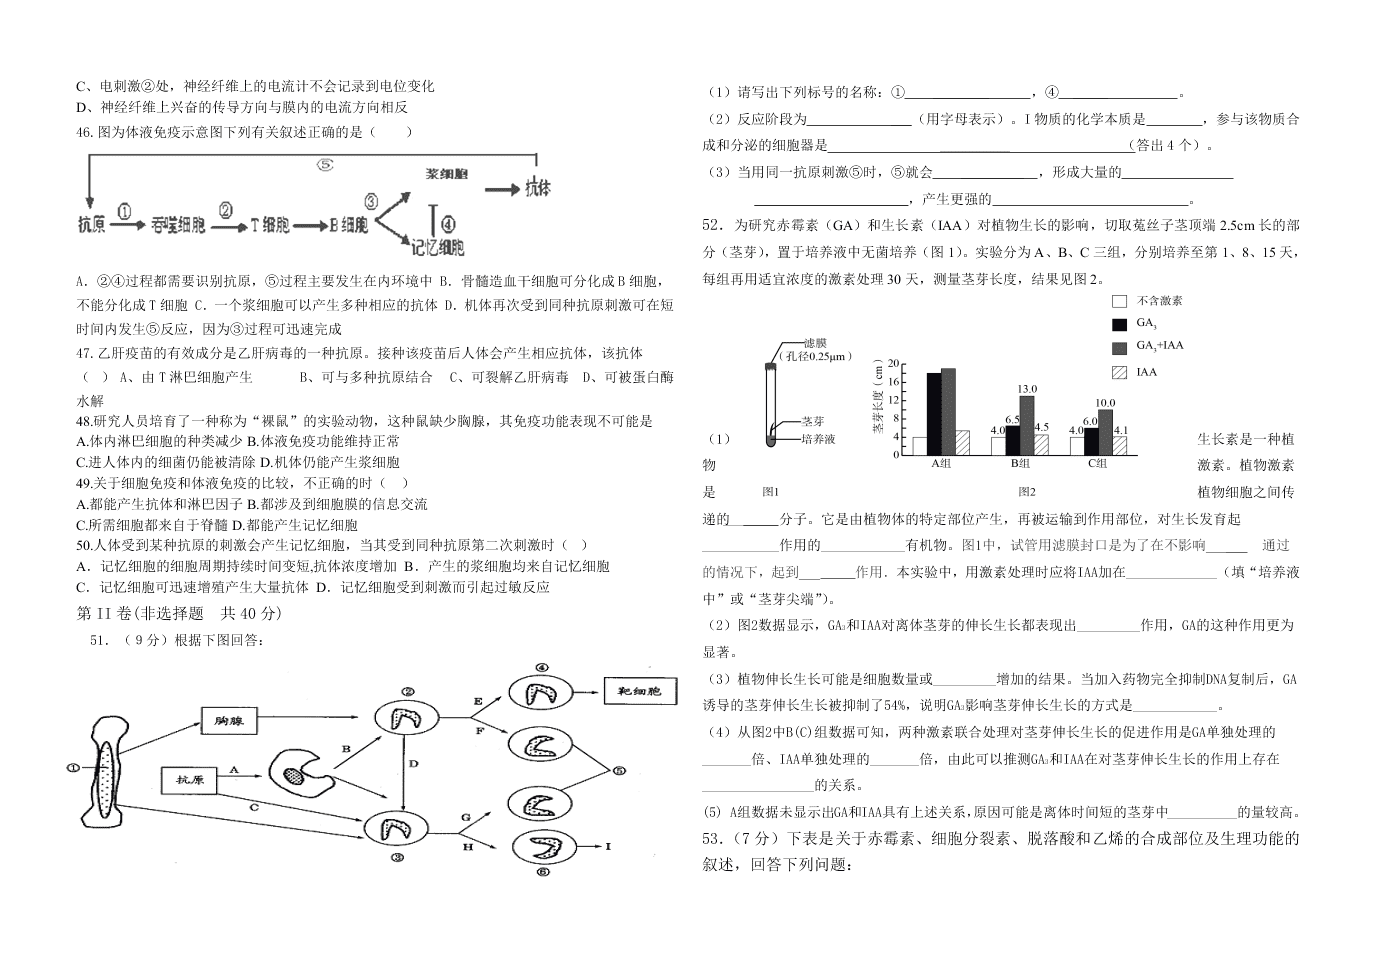 C、电刺激②处，神经纤维上的电流计不会记录到电位变化
D、神经纤维上兴奋的传导方向与膜内的电流方向相反
46. 图为体液免疫示意图下列有关叙述正确的是（　　）
⑤
浆细胞
抗体
抗原 ① 吞噬细胞 ② T 细胞 B 细胞 ③ ④
记忆细胞
A．②④过程都需要识别抗原，⑤过程主要发生在内环境中 B．骨髓造血干细胞可分化成 B 细胞，
不能分化成 T 细胞 C．一个浆细胞可以产生多种相应的抗体 D．机体再次受到同种抗原刺激可在短
时间内发生⑤反应，因为③过程可迅速完成
47. 乙肝疫苗的有效成分是乙肝病毒的一种抗原。接种该疫苗后人体会产生相应抗体，该抗体
（　） A、由 T 淋巴细胞产生　　　B、可与多种抗原结合　C、可裂解乙肝病毒　D、可被蛋白酶
水解
48.研究人员培育了一种称为“裸鼠”的实验动物，这种鼠缺少胸腺，其免疫功能表现不可能是
A.体内淋巴细胞的种类减少 B.体液免疫功能维持正常
C.进人体内的细菌仍能被清除 D.机体仍能产生浆细胞
49.关于细胞免疫和体液免疫的比较，不正确的时（　）
A.都能产生抗体和淋巴因子 B.都涉及到细胞膜的信息交流
C.所需细胞都来自于脊髓 D.都能产生记忆细胞
50.人体受到某种抗原的刺激会产生记忆细胞，当其受到同种抗原第二次刺激时（　）
A．记忆细胞的细胞周期持续时间变短,抗体浓度增加 B．产生的浆细胞均来自记忆细胞
C．记忆细胞可迅速增殖产生大量抗体 D．记忆细胞受到刺激而引起过敏反应
第 II 卷(非选择题　共 40 分)
51．（ 9 分）根据下图回答：
④
靶细胞
②
E
胸腺
F
B
① A D ⑤
抗原
C
G
H I
③
⑥
（1）请写出下列标号的名称：①__________________，④_________________。
（2）反应阶段为_______________（用字母表示）。I 物质的化学本质是________，参与该物质合
成和分泌的细胞器是____________________________________________（答出 4 个）。
（3）当用同一抗原刺激⑤时，⑤就会_______________，形成大量的________________
______________________，产生更强的____________________________。
52．为研究赤霉素（GA）和生长素（IAA）对植物生长的影响，切取菟丝子茎顶端 2.5cm 长的部
分（茎芽），置于培养液中无菌培养（图 1）。实验分为 A、B、C 三组，分别培养至第 1、8、15 天，
每组再用适宜浓度的激素处理 30 天，测量茎芽长度，结果见图 2。
不含激素
GA3
GA3+IAA
IAA
滤膜
（孔径0.25μm）
茎芽
培养液
图1
茎芽长度（cm）
20
16
12
8
4
0
4.0 6.5 13.0 4.5
4.0 6.0 10.0 4.1
A组 B组 C组
图2
（1）　生长素是一种植
物　激素。植物激素
是　植物细胞之间传
递的_______分子。它是由植物体的特定部位产生，再被运输到作用部位，对生长发育起
___________作用的____________有机物。图1中，试管用滤膜封口是为了在不影响______　通过
的情况下，起到________作用．本实验中，用激素处理时应将IAA加在_____________（填“培养液
中”或“茎芽尖端”）。
（2）图2数据显示，GA3和IAA对离体茎芽的伸长生长都表现出_________作用，GA的这种作用更为
显著。
（3）植物伸长生长可能是细胞数量或_________增加的结果。当加入药物完全抑制DNA复制后，GA
诱导的茎芽伸长生长被抑制了54%，说明GA3影响茎芽伸长生长的方式是____________。
（4）从图2中B(C)组数据可知，两种激素联合处理对茎芽伸长生长的促进作用是GA单独处理的
_______倍、IAA单独处理的_______倍，由此可以推测GA3和IAA在对茎芽伸长生长的作用上存在
________________的关系。
(5) A组数据未显示出GA和IAA具有上述关系,原因可能是离体时间短的茎芽中__________的量较高。
53．（7 分）下表是关于赤霉素、细胞分裂素、脱落酸和乙烯的合成部位及生理功能的
叙述，回答下列问题：